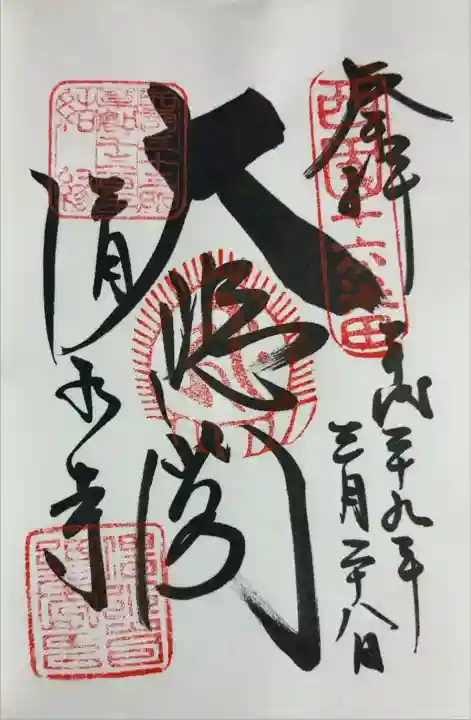 奉拝
西国十六番
平成二十九年
三月二十八日
大悲閣
清水寺